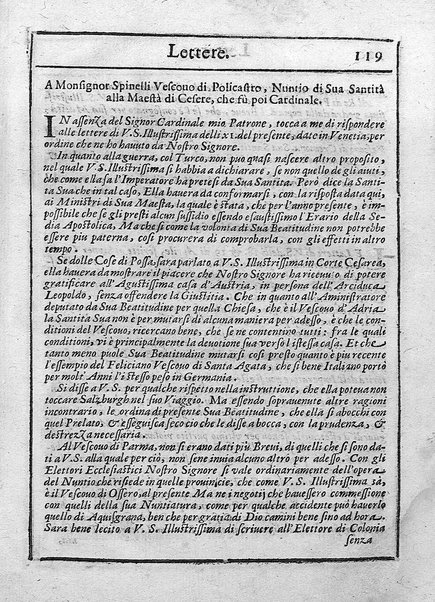 Lettere. 119
A Monsignor Spinelli Vescouo di Policastro, Nuntio di Sua Santità
alla Maestà di Cesere, che fù poi Cardinale.
IN assenza del Signor Cardinale mio Patrone, tocca a me di rispondere
alle lettere di V.S.Illustrissima delli XI del presente, date in Venetia, per
ordine che ne ho hauuto da Nostro Signore.
In quanto alla guerra, col Turco, non può quasi nascere altro proposito,
nel quale V.S Illustrissima si habbia a dichiarare, se non quello de gli aiuti,
che come ella sa l'Imperatore ha pretesi da Sua Santita. Però dice la Santi-
ta Sua che in tal caso, Ella hauera da conformarsi, con la risposta data qui
ai Ministri di Sua Maesta, la quale è stata, che per l'anno presente, è im-
possibile che se gli presti alcun sussidio essendo esaustissimo l'Erario della Se-
dia Apostolica, Ma che si come la volonta di Sua Beatitudine non potrebbe
essere piu paterna, così procurera di comprobarla, con gli effetti in altro
tempo.
Se dolle Cose di Possa, sara parlato a V.S. Illustrissima in Corte Cesarea,
ella hauera da mostrare il piacere che Nostro Signore ha riceuuto di potere
gratificare all'Agustissima casa d'Austria, in persona dell'Arciduca
Leopoldo, senza offendere la Giustitia. Che in quanto all'Aministratore
deputato da Sua Beatitudine per quella Chiesa, che è il Vescouo d'Adria
la Santità Sua non è per mutarsi di alcuna maniera per adesso, è che le con-
ditioni del Vescouo, ricercano bene, che se ne contentino tutti: fra le quali
conditioni, vi è principalmente la deuotione sua verso l'istessa casa. Et che
tanto meno puole Sua Beatitudine mutarsi così presto quanto è piu recente
l'essempio del Feliciano Vescouo di Santa Agata, che si bene Italiano portò
per molt'Anni l'istesso peso in Germania.
Si disse a V.S. per qualche rispetto nella instruttione, che ella poteua non
toccare Salzburgh nel suo Viaggio. Ma essendo soprauenute altre ragioni
incontrario, le ordina di presente Sua Beatitudine, che ella si abocchi con
quel Prelato, & esseguisca cocio che le disse a bocca, con la prudenza, &
destrezza necessaria.
Al Vescouo di Parma, non si erano dati più Breui, di quelli che si sono da-
ti a V.S. alla quale per ciò, non se ne inuia alcuno altro per adesso. Con gli
Elettori Ecclesiastici Nostro Signore si vale ordinariamente dell'opera
del Nuntio che risiede in quelle prouincie, che come V.S. Illustrissima sà,
è il Vescouo di Ossero, al presente Ma ne i negotij che hauessero commessione
con quelli della sua Nuntiatura, come per qualche accidente può hauerlo
quello di Aquisgrand, ben che per gratia di Dio camini bene sino ad hora.
Sara bene lecito a V.S. Illustrissima di scriuere all'Elettore di Colonia
senza